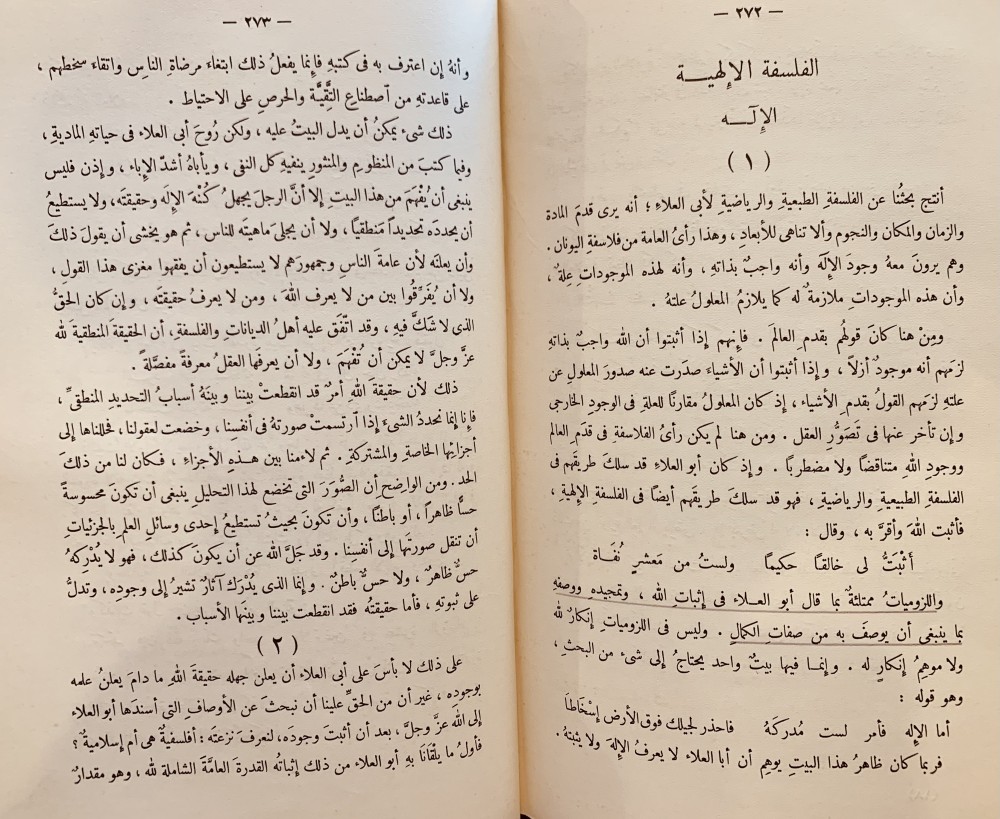 — ٢٧٢ —
الفلسفة الإلهيـــة
الإلٓـــه
( ١ )
أنتج بحثُنا عن الفلسفةِ الطبعيةِ والرياضيةِ لأبي العلاءِ ؛ أنه يرى قدمَ المادة
والزمان والمكان والنجوم وألا تناهى للأبعادِ ، وهذا رأىُ العامة من فلاسفةِ اليونان .
وهم يرونَ معهُ وجودَ الإلٓه وأنه واجبٌ بذاتهِ ، وأنه لهذه الموجوداتِ عِلةٌ ،
وأن هذه الموجوداتِ ملازمةٌ له كما يلازمُ المعلولُ علتهُ .
ومِنْ هنا كانَ قولُهم بقدم العالمَ . فإنهم إذا أثبتوا أن الله واجبٌ بذاتهِ
لزمَهم أنه موجودٌ أزلاً ، وإذا أثبتوا أن الأشياءَ صدَرت عنه صدورَ المعلولِ عن
علتهِ لزمَهم القولُ بقدمِ الأشياء ، إذ كان المعلولُ مقارنًا للعلةِ فى الوجودِ الخارجى
وإن تأخر عنها فى تَصَوُّر العقل . ومن هنا لم يكن رأىُ الفلاسفة فى قدَمِ العالم
ووجودِ اللهِ متناقضًا ولا مضطربًا . وإذ كان أبو العلاءِ قد سلكَ طريقَهم فى
الفلسفةِ الطبيعيةِ والرياضيةِ ، فهو قد سلكَ طريقَهم أيضًا فى الفلسفةِ الإلهيةِ ،
فأثبت اللهَ وأقرَّ به ، وقال :
أَثْبَتُّ لى خالقًا حكيمًا ولستُ من مَعشرٍ نُفَاة
واللزومياتُ ممتلئةٌ بما قال أبو العـلاء فى إثباتِ الله ، وتمجيدِه ووصفهِ
بما ينبغى أن يوصفَ به من صفاتِ الكمالِ . وليس فى اللزومياتِ إنكارٌ لله
ولا موهِمُ إنكارٍ له . وإنمـا فيها بيتٌ واحد يحتاجُ إلى شىء من البحثِ ،
وهو قوله :
أما الإله فأمر لست مُدركَهُ فاحذر لجيلك فوق الأرض إسْخَاطاَ
فربما كان ظاهرُ هذا البيتِ يوهِم أن أبا العلاء لا يعرفُ الإلهَ ولا يثبتهُ .
— ٢٧٣ —
وأنهُ إن اعترف به فى كتبهِ فإنما يفعلُ ذلك ابتغاءَ مرضاةِ الناسِ واتقاءَ سخطهم ،
على قاعدتهِ من اَصطناعِ التَّقيَّة والحرصِ على الاحتياط .
ذلك شىء يمكنُ أن يدل البيتُ عليه ، ولكن رُوحَ أبى العلاء فى حياتهِ الماديةِ ،
وفيما كتبَ من المنظومِ والمنثورِ ينفيهِ كل النفى ، ويأباهُ أشدّ الإباء ، وإذن فليس
ينبغى أن يُفْهَمَ من هذا البيتِ إلا أنَّ الرجلَ يجهلُ كُنْهَ الإله وحقيقتَه، ولا يستطيعُ
أن يحددَه تحديداً مَنطقيًا ، ولا أن يجلىَ ماهيتَه للناس ، ثم هو يخشى أن يقولَ ذلكَ
وأن يعلنَه لأن عامةَ الناسِ وجمهورَهم لا يستطيعون أن يفقهوا مغزى هذا القولِ ،
ولا أن يُفَرِّقُوا بين من لا يعرف اللهَ ، ومن لا يعرفُ حقيقتَه ، وإن كان الحقُّ
الذى لا شكَّ فيهِ ، وقد اتّفَقَ عليه أهلُ الديانات والفلسفةِ ، أن الحقيقةَ المنطقيةَ لله
عزَّ وجلَّ لا يمكن أن تُفْهَمَ ، ولا أن يعرفها العقلُ معرفةً مفصَّلةً .
ذلك لأن حقيقةَ اللهِ أمرٌ قد انقطعتْ بيننا وبينَهُ أسبابُ التحديدِ المنطقىّ ،
فإنا إنما نحددُ الشىء إذا اَرتسمتْ صورته فى أنفسِنا ، وخضعت لعقولنا ، فحللناها إلى
أجزائِها الخاصةِ والمشتركةِ . ثم لاءمنا بين هـذهِ الأجزاءِ ، فكان لنا من ذلكَ
الحد . ومن الواضحِ أن الصُّوَرَ التى تخضع لهذا التحليلِ ينبغى أن تكونَ محسوسةً
حسًّا ظاهراً ، أو باطنًا ، وأن تكونَ بحيثُ تستطيعُ إحدى وسائلِ العلمِ بالجزئياتِ
أن تنقل صورتَها إلى أنفسِنا . وقد جَلَّ الله عن أن يكونَ كذلك ، فهو لا يُدْركهُ
حسٌّ ظاهرٌ ، ولا حسٌّ باطنٌ . وإنما الذى يُدْرَك آثارٌ تشيرُ إلى وجودِه ، وتدلُّ
على ثبوتهِ ، فأما حقيقتُه فقد انقطعت بيننا وبينَها الأسباب .
( ٢ )
على ذلك لا بأسَ على أبى العلاء أن يعلنَ جهله حقيقةَ اللهِ ما دامَ يعلنُ علمه
بوجودِه ، غير أن من الحقِّ علينا أن نبحثَ عن الأوصافِ التى أسندَها أبو العلاء
إلى اللهِ عزَّ وجلَّ ، بعد أن أثبتَ وجودَه، لنعرفَ نزعتَه : أفلسفيةٌ هى أم إسلاميةٌ ؟
فأولُ ما يلْقَانَا بهِ أبو العلاء من ذلك إثباتُه القدرةَ العامَّةَ الشاملةَ لله ، وهو مقدارٌ